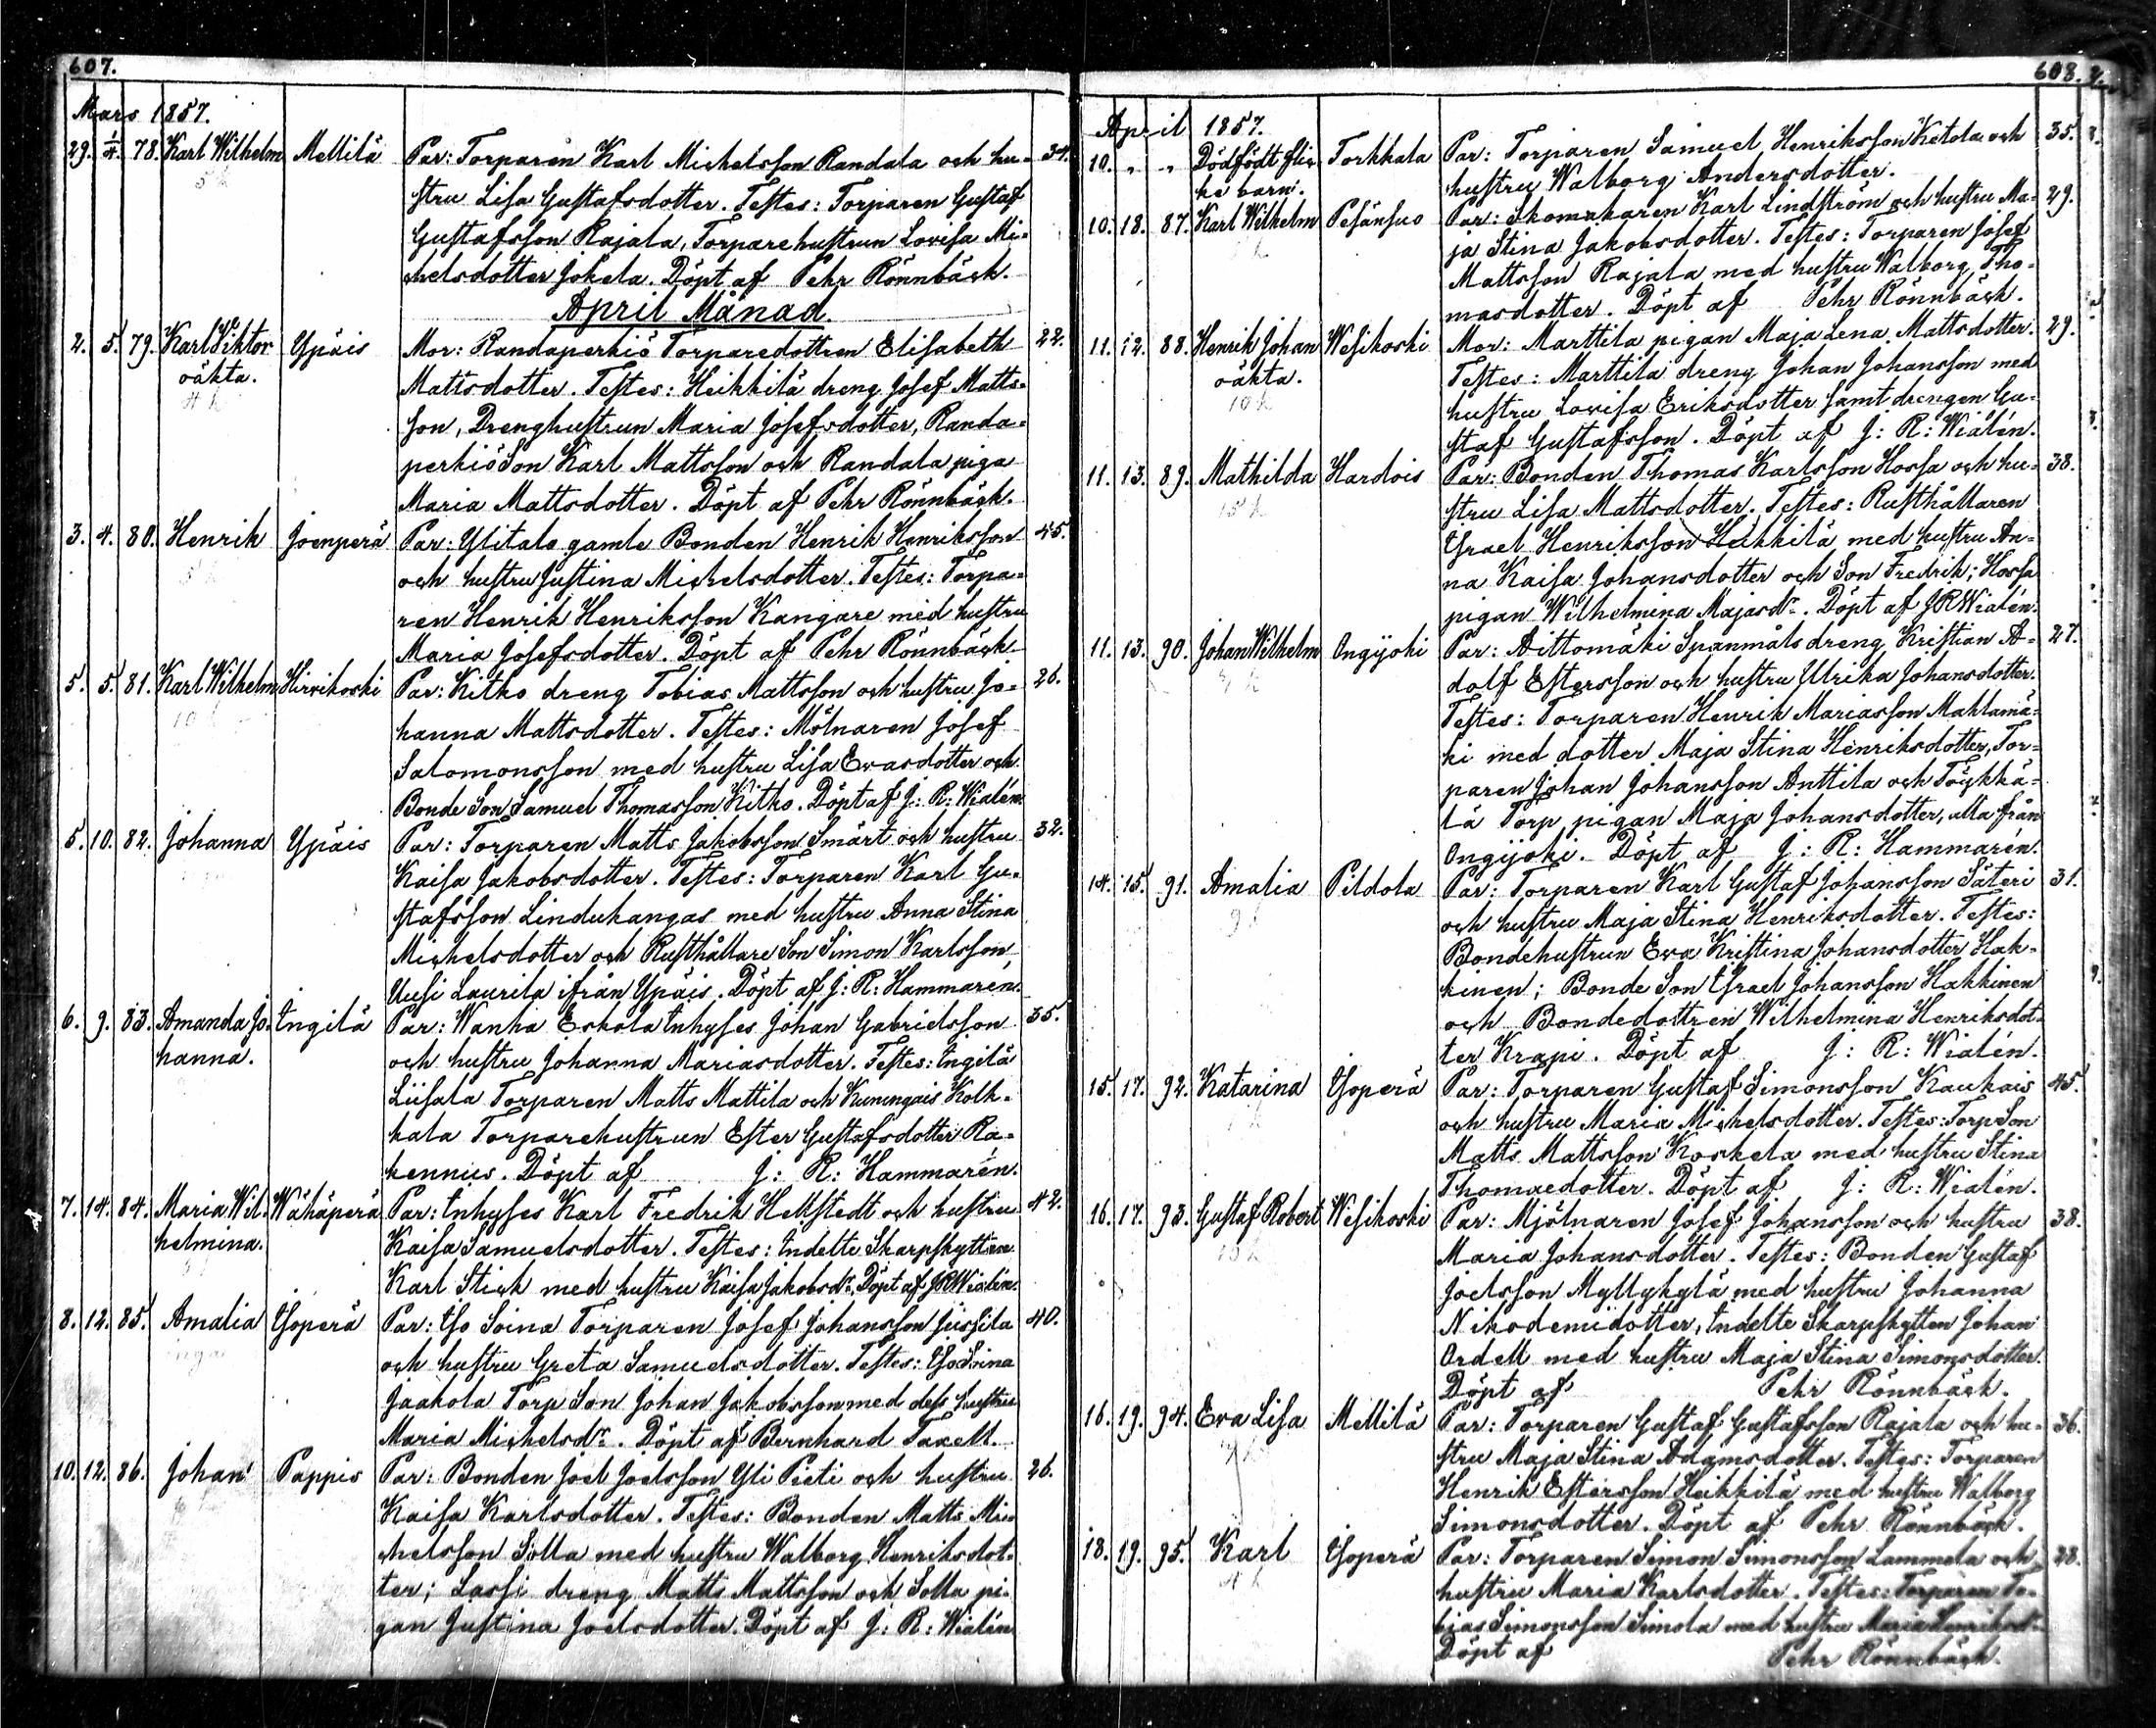 607.
Mars 1857.
29. 1/4. 78. Karl Wilhelm Mellilä Par: Torparen Karl Michelsson Randala och hu- 34.
stru Lisa Gustafsdotter. Testes: Torparen Gustaf
Gustafsson Rajala, Torparehustrun Lovisa Mi-
chelsdotter Jokela. Döpt af Pehr Rönnbäck.
April Månad.
2. 5. 79. Karl Viktor Ypäis Mor: Randaperkiö Torparedottren Elisabeth 22.
oäkta. Mattsdotter. Testes: Heikkilä dreng Josef Matts-
son, Drenghustrun Maria Josefsdotter, Randa-
perkiö Son Karl Mattsson och Randala piga
Maria Mattsdotter. Döpt af Pehr Rönnbäck.
3. 4. 80. Henrik Joenperä Par: Ylitalo gamle Bonden Henrik Henriksson 45.
och hustru Justina Michelsdotter. Testes: Torpa-
ren Henrik Henriksson Kangare med hustru
Maria Josefsdotter. Döpt af Pehr Rönnbäck.
5. 5. 81. Karl Wilhelm Hirvikoski Par: Kitko dreng Tobias Mattsson och hustru Jo- 26.
hanna Mattsdotter. Testes: Mölnaren Josef
Salomonsson med hustru Lisa Evasdotter och
Bonde Son Samuel Thomasson Kitko. Döpt af J: R: Wialén.
5. 10. 82. Johanna Ypäis Par: Torparen Matts Jakobsson Smärt och hustru 32.
Kaisa Jakobsdotter. Testes: Torparen Karl Gu-
stafsson Lindukangas med hustru Anna Stina
Michelsdotter och Rusthållare Son Simon Karlsson
Uusi Laurila ifrån Ypäis. Döpt af J: R: Hammarén.
6. 9. 83. Amanda Jo- Ingilä Par: Wanha Eskola Inhyses Johan Gabrielsson 35.
hanna. och hustru Johanna Mariasdotter. Testes: Ingilä
Liisala Torparen Matts Mattila och Kuningais Kolk-
kala Torparehustrun Ester Gustafsdotter Ra-
kennus. Döpt af J: R: Hammarén.
7. 14. 84. Maria Wil- Wähäperä Par: Inhyses Karl Fredrik Hellstedt och hustru 42.
helmina. Kaisa Samuelsdotter. Testes: Indelte Skarpskytten
Karl Stick med hustru Kaisa Jakobsdr. Döpt af JRWialén.
8. 12. 85. Amalia Isoperä Par: Iso Soina Torparen Josef Johansson Jussila 40.
och hustru Greta Samuelsdotter. Testes: Iso Soina
Jaakola Torp Son Johan Jakobsson med dess hustru
Maria Michelsdr. Döpt af Bernhard Taxell.
10. 12. 86. Johan Pappis Par: Bonden Joel Joelsson Yli Peeti och hustru 26.
Kaisa Karlsdotter. Testes: Bonden Matts Mi-
chelsson Solla med hustru Walborg Henriksdot-
ter; Lassi dreng Matts Mattsson och Solla pi-
gan Justina Joelsdotter. Döpt af J: R: Wialén
608.
April 1857.
10. " " Dödfödt flic- Torkkala Par: Torparen Samuel Henriksson Ketola och 35.
ke barn. hustru Walborg Andersdotter.
10. 18. 87. Karl Wilhelm Pesänsuo Par: Skomakaren Karl Lindström och hustru Ma- 29.
ja Stina Jakobsdotter. Testes: Torparen Josef
Mattsson Rajala med hustru Walborg Tho-
masdotter. Döpt af Pehr Rönnbäck.
11. 12. 88. Henrik Johan Wesikoski Mor: Marttila pigan Maja Lena Mattsdotter. 29.
oäkta. Testes: Marttila dreng Johan Johansson med
hustru Lovisa Eriksdotter samt drengen Gu-
staf Gustafsson. Döpt af J: R: Wialén.
11. 13. 89. Mathilda Hardois Par: Bonden Thomas Karlsson Hossa och hu- 38.
stru Lisa Mattsdotter. Testes: Rusthållaren
Israel Henriksson Heikkilä med hustru An-
na Kaisa Johansdotter och Son Fredrik; Hossa
pigan Wilhelmina Majasdr. Döpt af JRWialén.
11. 13. 90. Johan Wilhelm Ongijoki Par: Aittomäki Spanmåls dreng Kristian A- 27.
dolf Estersson och hustru Ulrika Johansdotter.
Testes: Torparen Henrik Mariasson Mahlamä-
ki med dotter Maja Stina Henriksdotter, Tor-
paren Johan Johansson Anttila och Töykkä-
lä Torp pigan Maja Johansdotter, alla från
Ongijoki. Döpt af J: R: Hammarén.
14. 15. 91. Amalia Pildola Par: Torparen Karl Gustaf Johansson Säteri 31.
och hustru Maja Stina Henriksdotter. Testes:
Bondehustrun Eva Kristina Johansdotter Hak-
kinen; Bonde Son Israel Johansson Hakkinen
och Bondedottren Wilhelmina Henriksdot-
ter Krapi. Döpt af J: R: Wialén.
15. 17. 92. Katarina Isoperä Par: Torparen Gustaf Simonsson Kaukais 45.
och hustru Maria Michelsdotter. Testes: Torp Son
Matts Mattsson Koskela med hustru Stina
Thomaedotter. Döpt af J: R: Wialén.
16. 17. 93. Gustaf Robert Wesikoski Par: Mjölnaren Josef Johansson och hustru 38.
Maria Johansdotter. Testes: Bonden Gustaf
Joelsson Myllykylä med hustru Johanna
Nikodemidotter, Indelte Skarpskytten Johan
Ordell med hustru Maja Stina Simonsdotter.
Döpt af Pehr Rönnbäck.
16. 19. 94. Eva Lisa Mellilä Par: Torparen Gustaf Gustafsson Rajala och hu- 36.
stru Maja Stina Adamsdotter. Testes: Torparen
Henrik Estersson Heikkilä med hustru Walborg
Simonsdotter. Döpt af Pehr Rönnbäck.
18. 19. 95. Karl Isoperä Par: Torparen Simon Simonsson Lammela och 28.
hustru Maria Karlsdotter. Testes: Torparen To-
bias Simonsson Simola med hustru Maria Henriksd.
Döpt af Pehr Rönnbäck.